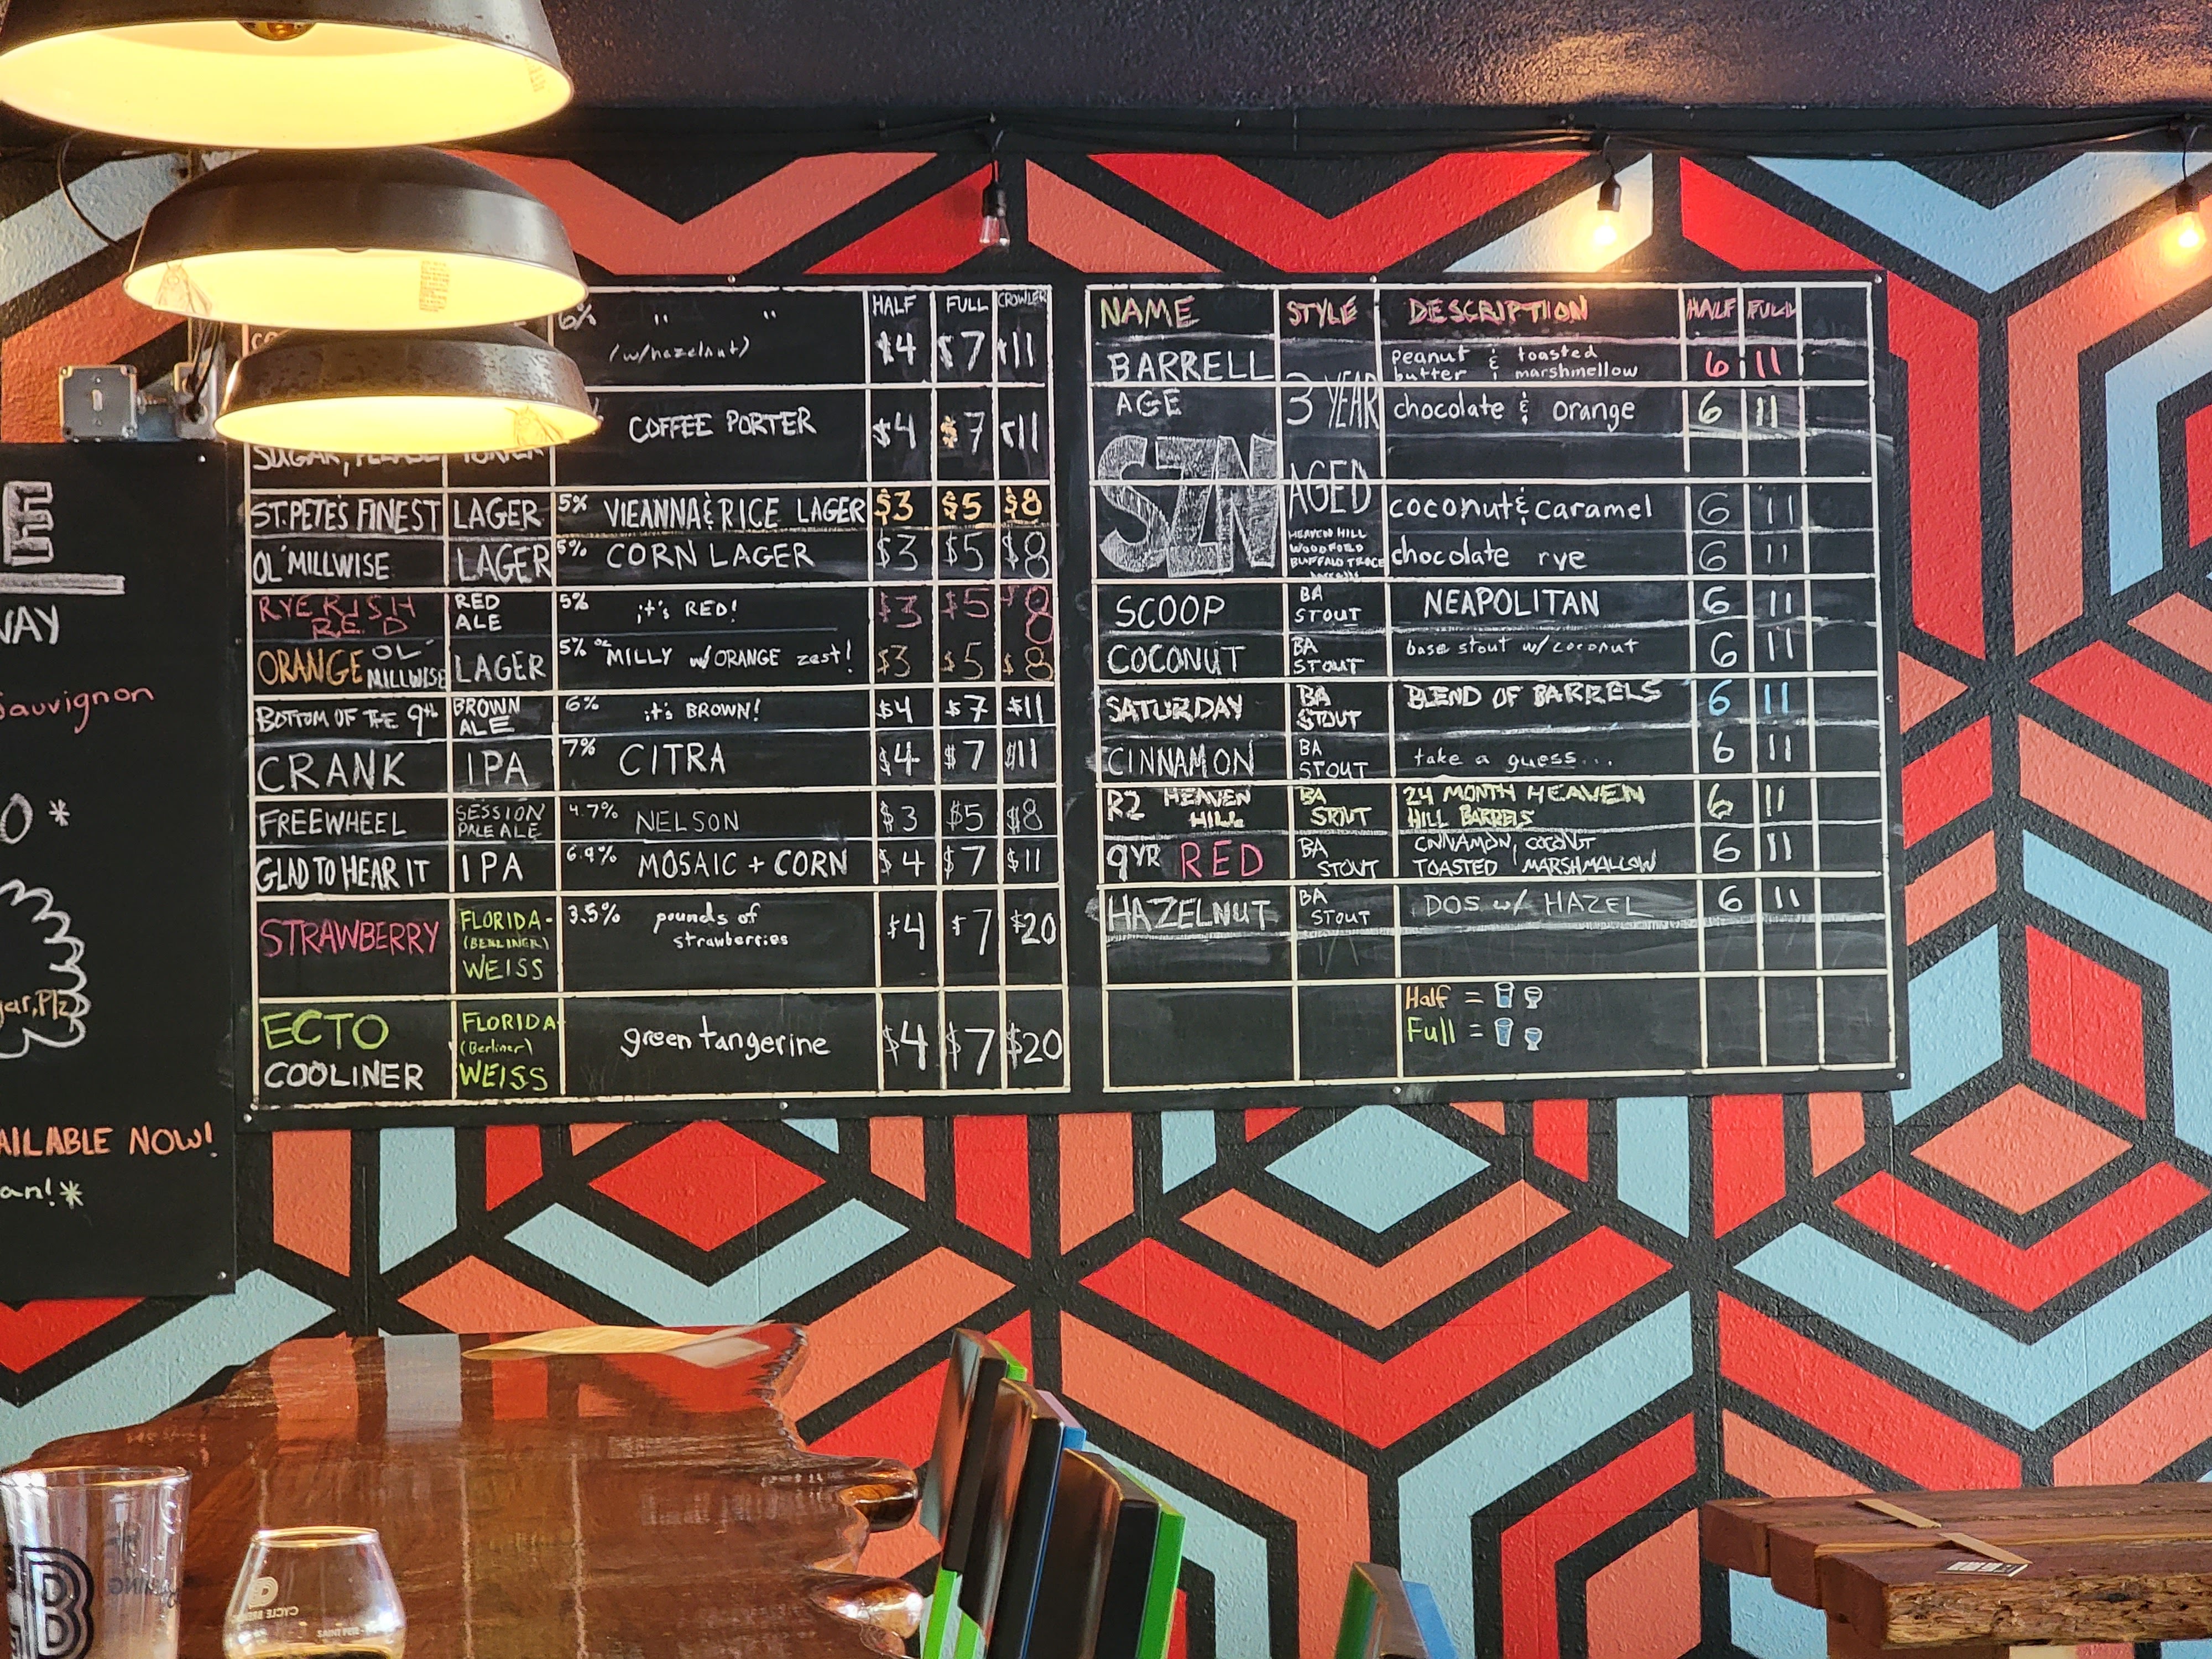 HALF FULL CROWLER
6% " "
(w/hazelnut) $4 $7 $11
COFFEE PORTER $4 $7 $11
SUGAR, PLEASE PORTER
ST. PETE'S FINEST LAGER 5% VIEANNA & RICE LAGER $3 $5 $8
OL' MILLWISE LAGER 5% CORN LAGER $3 $5 $8
RYE RISH RED RED ALE 5% it's RED! $3 $5 $8
ORANGE OL' MILLWISE LAGER 5% OL' MILLY w/ ORANGE zest! $3 $5 $8
BOTTOM OF THE 9th BROWN ALE 6% it's BROWN! $4 $7 $11
CRANK IPA 7% CITRA $4 $7 $11
FREEWHEEL SESSION PALE ALE 4.7% NELSON $3 $5 $8
GLAD TO HEAR IT IPA 6.9% MOSAIC + CORN $4 $7 $11
STRAWBERRY FLORIDA- (BERLINER) WEISS 3.5% pounds of strawberries $4 $7 $20
ECTO COOLINER FLORIDA- (Berliner) WEISS green tangerine $4 $7 $20
NAME STYLE DESCRIPTION HALF FULL
BARRELL AGE SZN
3 YEAR AGED
HEAVEN HILL
WOODFORD
BUFFALO TRACE
barrells
peanut butter & toasted marshmellow 6 11
chocolate & orange 6 11
coconut & caramel 6 11
chocolate rye 6 11
SCOOP BA STOUT NEAPOLITAN 6 11
COCONUT BA STOUT base stout w/ coconut 6 11
SATURDAY BA STOUT BLEND OF BARRELS 6 11
CINNAMON BA STOUT take a guess... 6 11
R2 HEAVEN HILL BA STOUT 24 MONTH HEAVEN HILL BARRELS 6 11
9YR RED BA STOUT CINNAMON, COCONUT TOASTED MARSHMALLOW 6 11
HAZELNUT BA STOUT DOS w/ HAZEL 6 11
Half =
Full =
E
WAY
Sauvignon
O*
gar, Plz
AILABLE NOW!
an!*
B
CYCLE
SAINT PETE